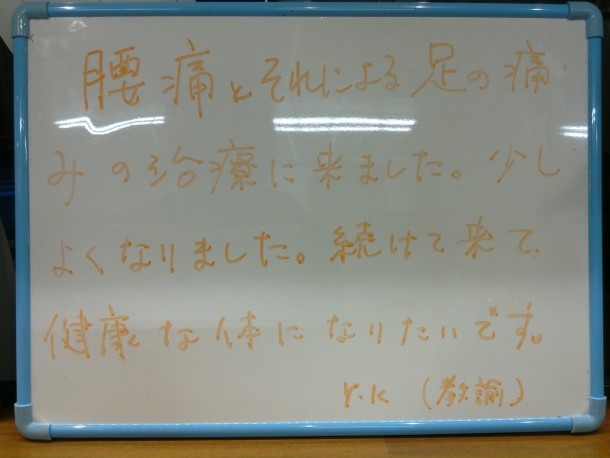 腰痛とそれによる足の痛
みの治療に来ました。少し
よくなりました。続けて来て、
健康な体になりたいです。
Y.K（教諭）